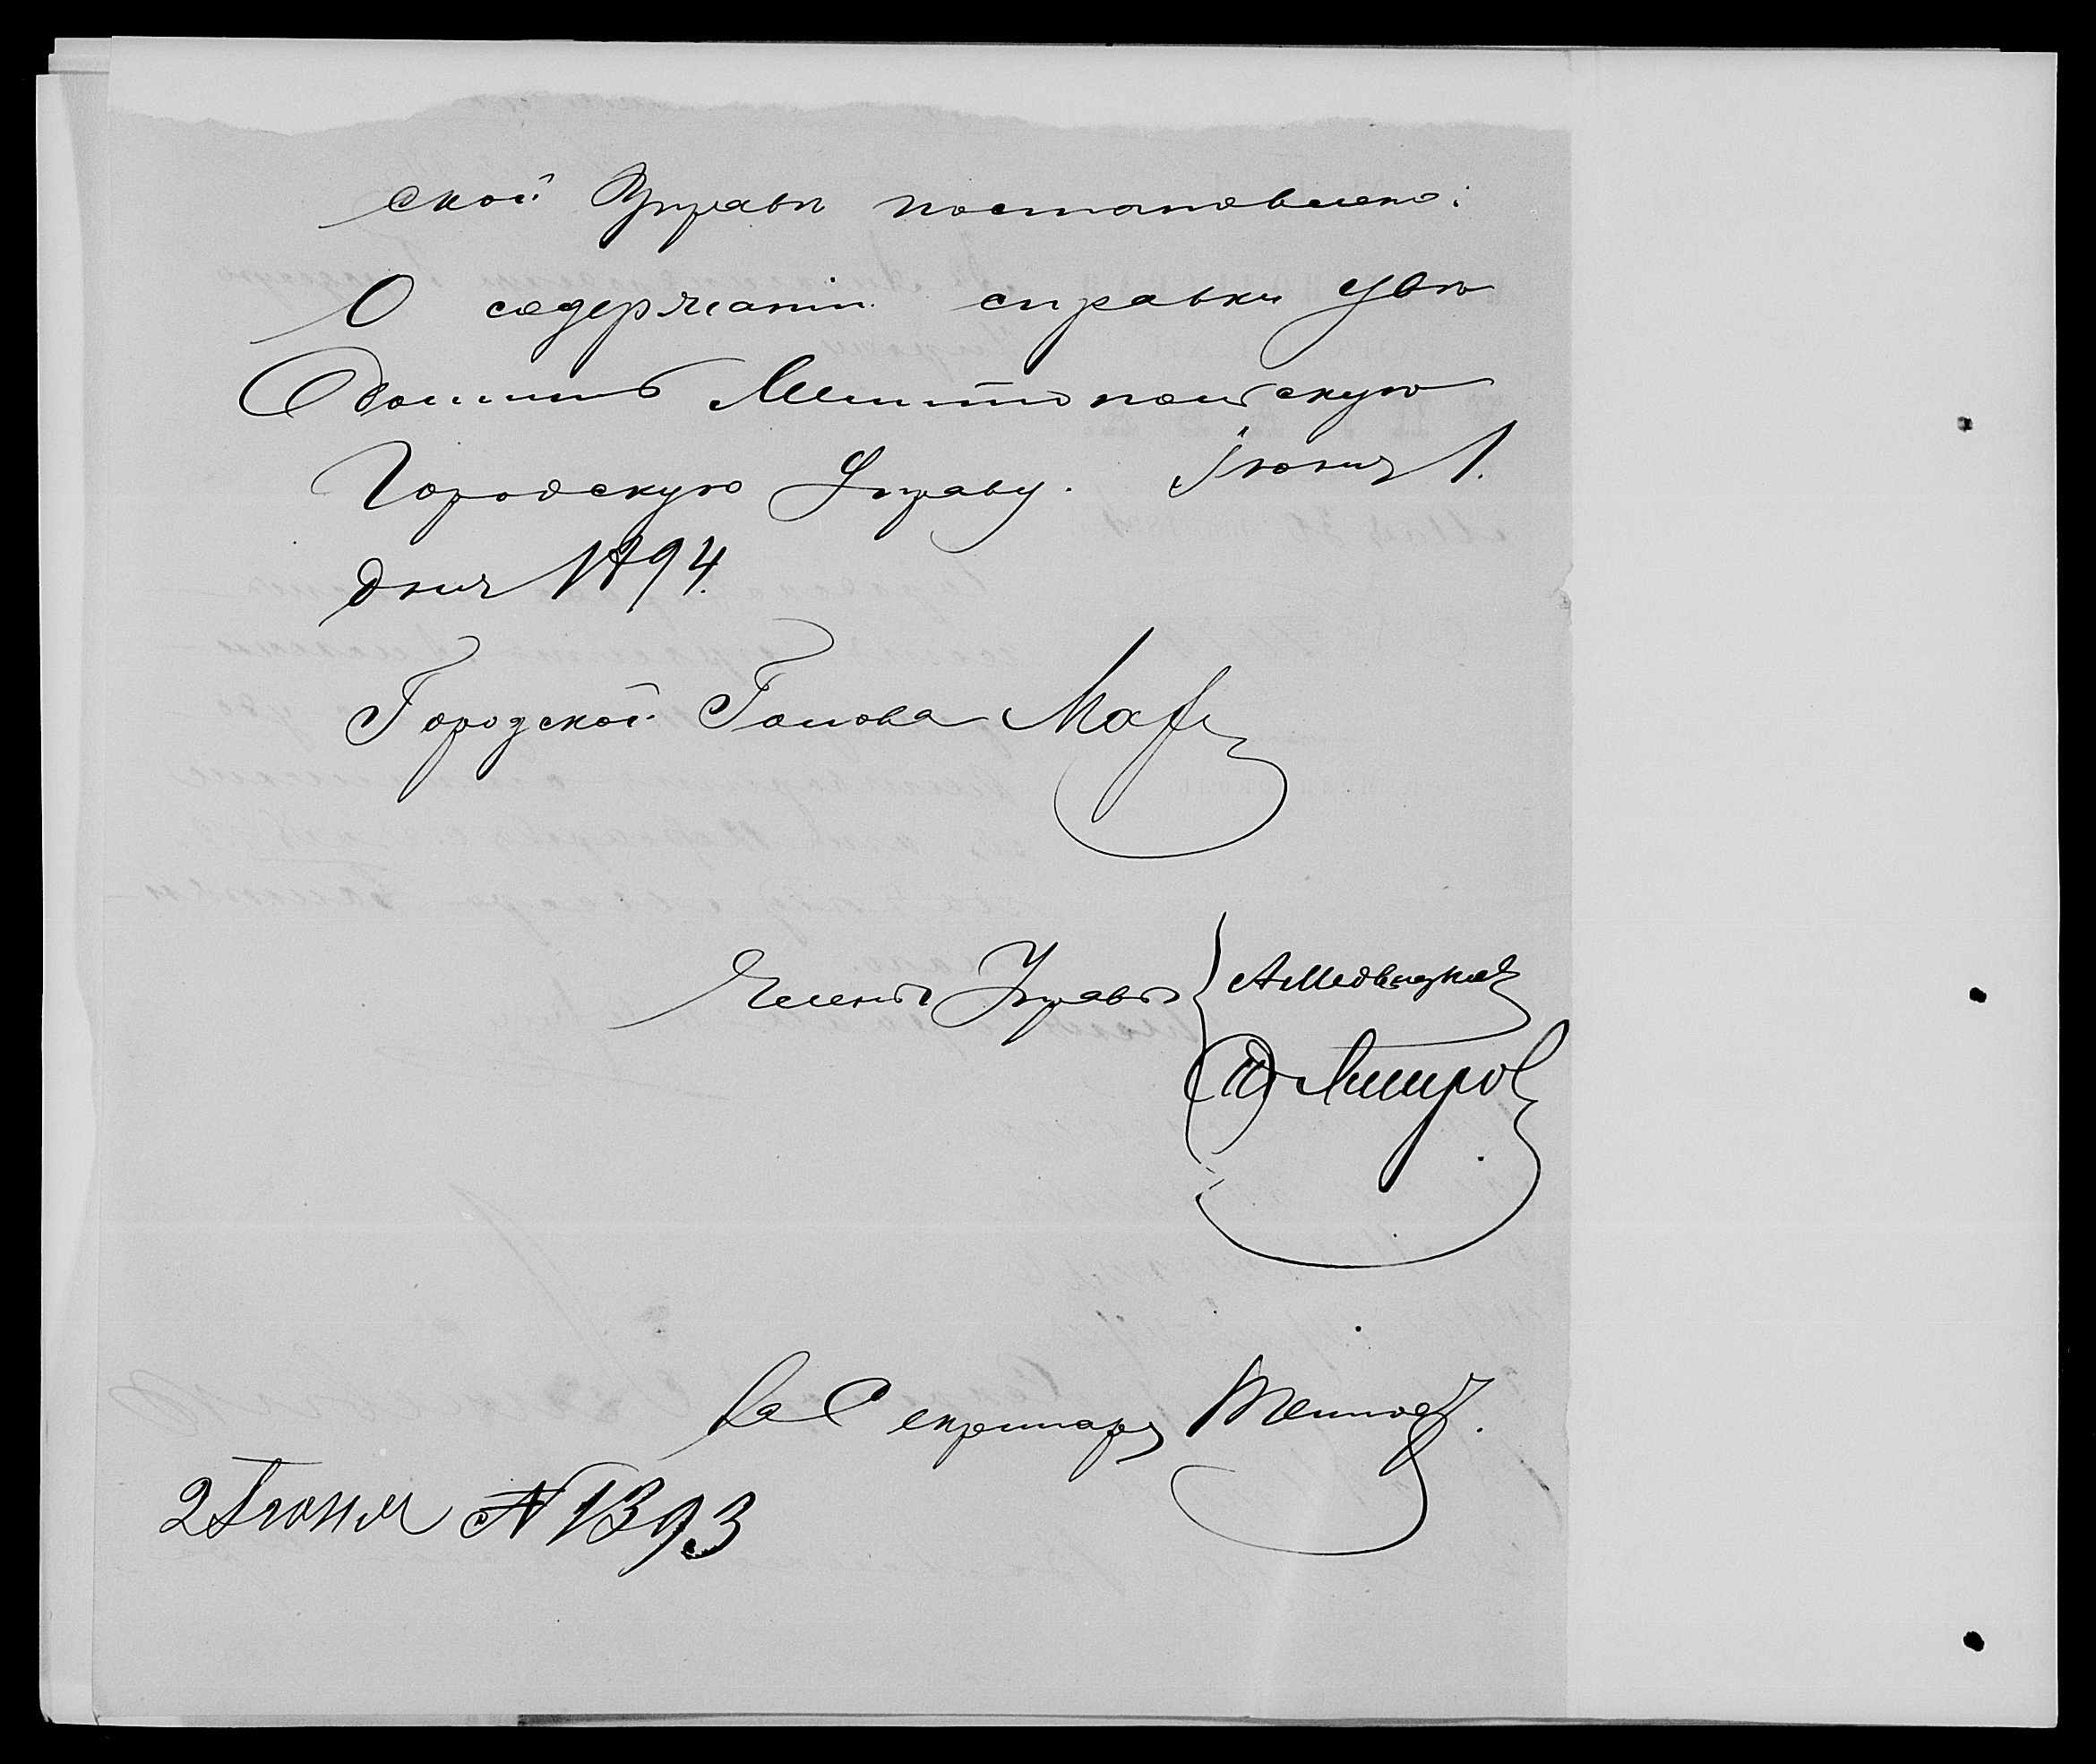 ской Управѣ постановлено:
О содержаніи справки увѣ
домить Мелитопольскую
Городскую Управу. Іюня 1.
дня 1894.
Городской Голова
Члены Управы А Медвѣдковъ
За Секретаря
2 Іюня № 1393